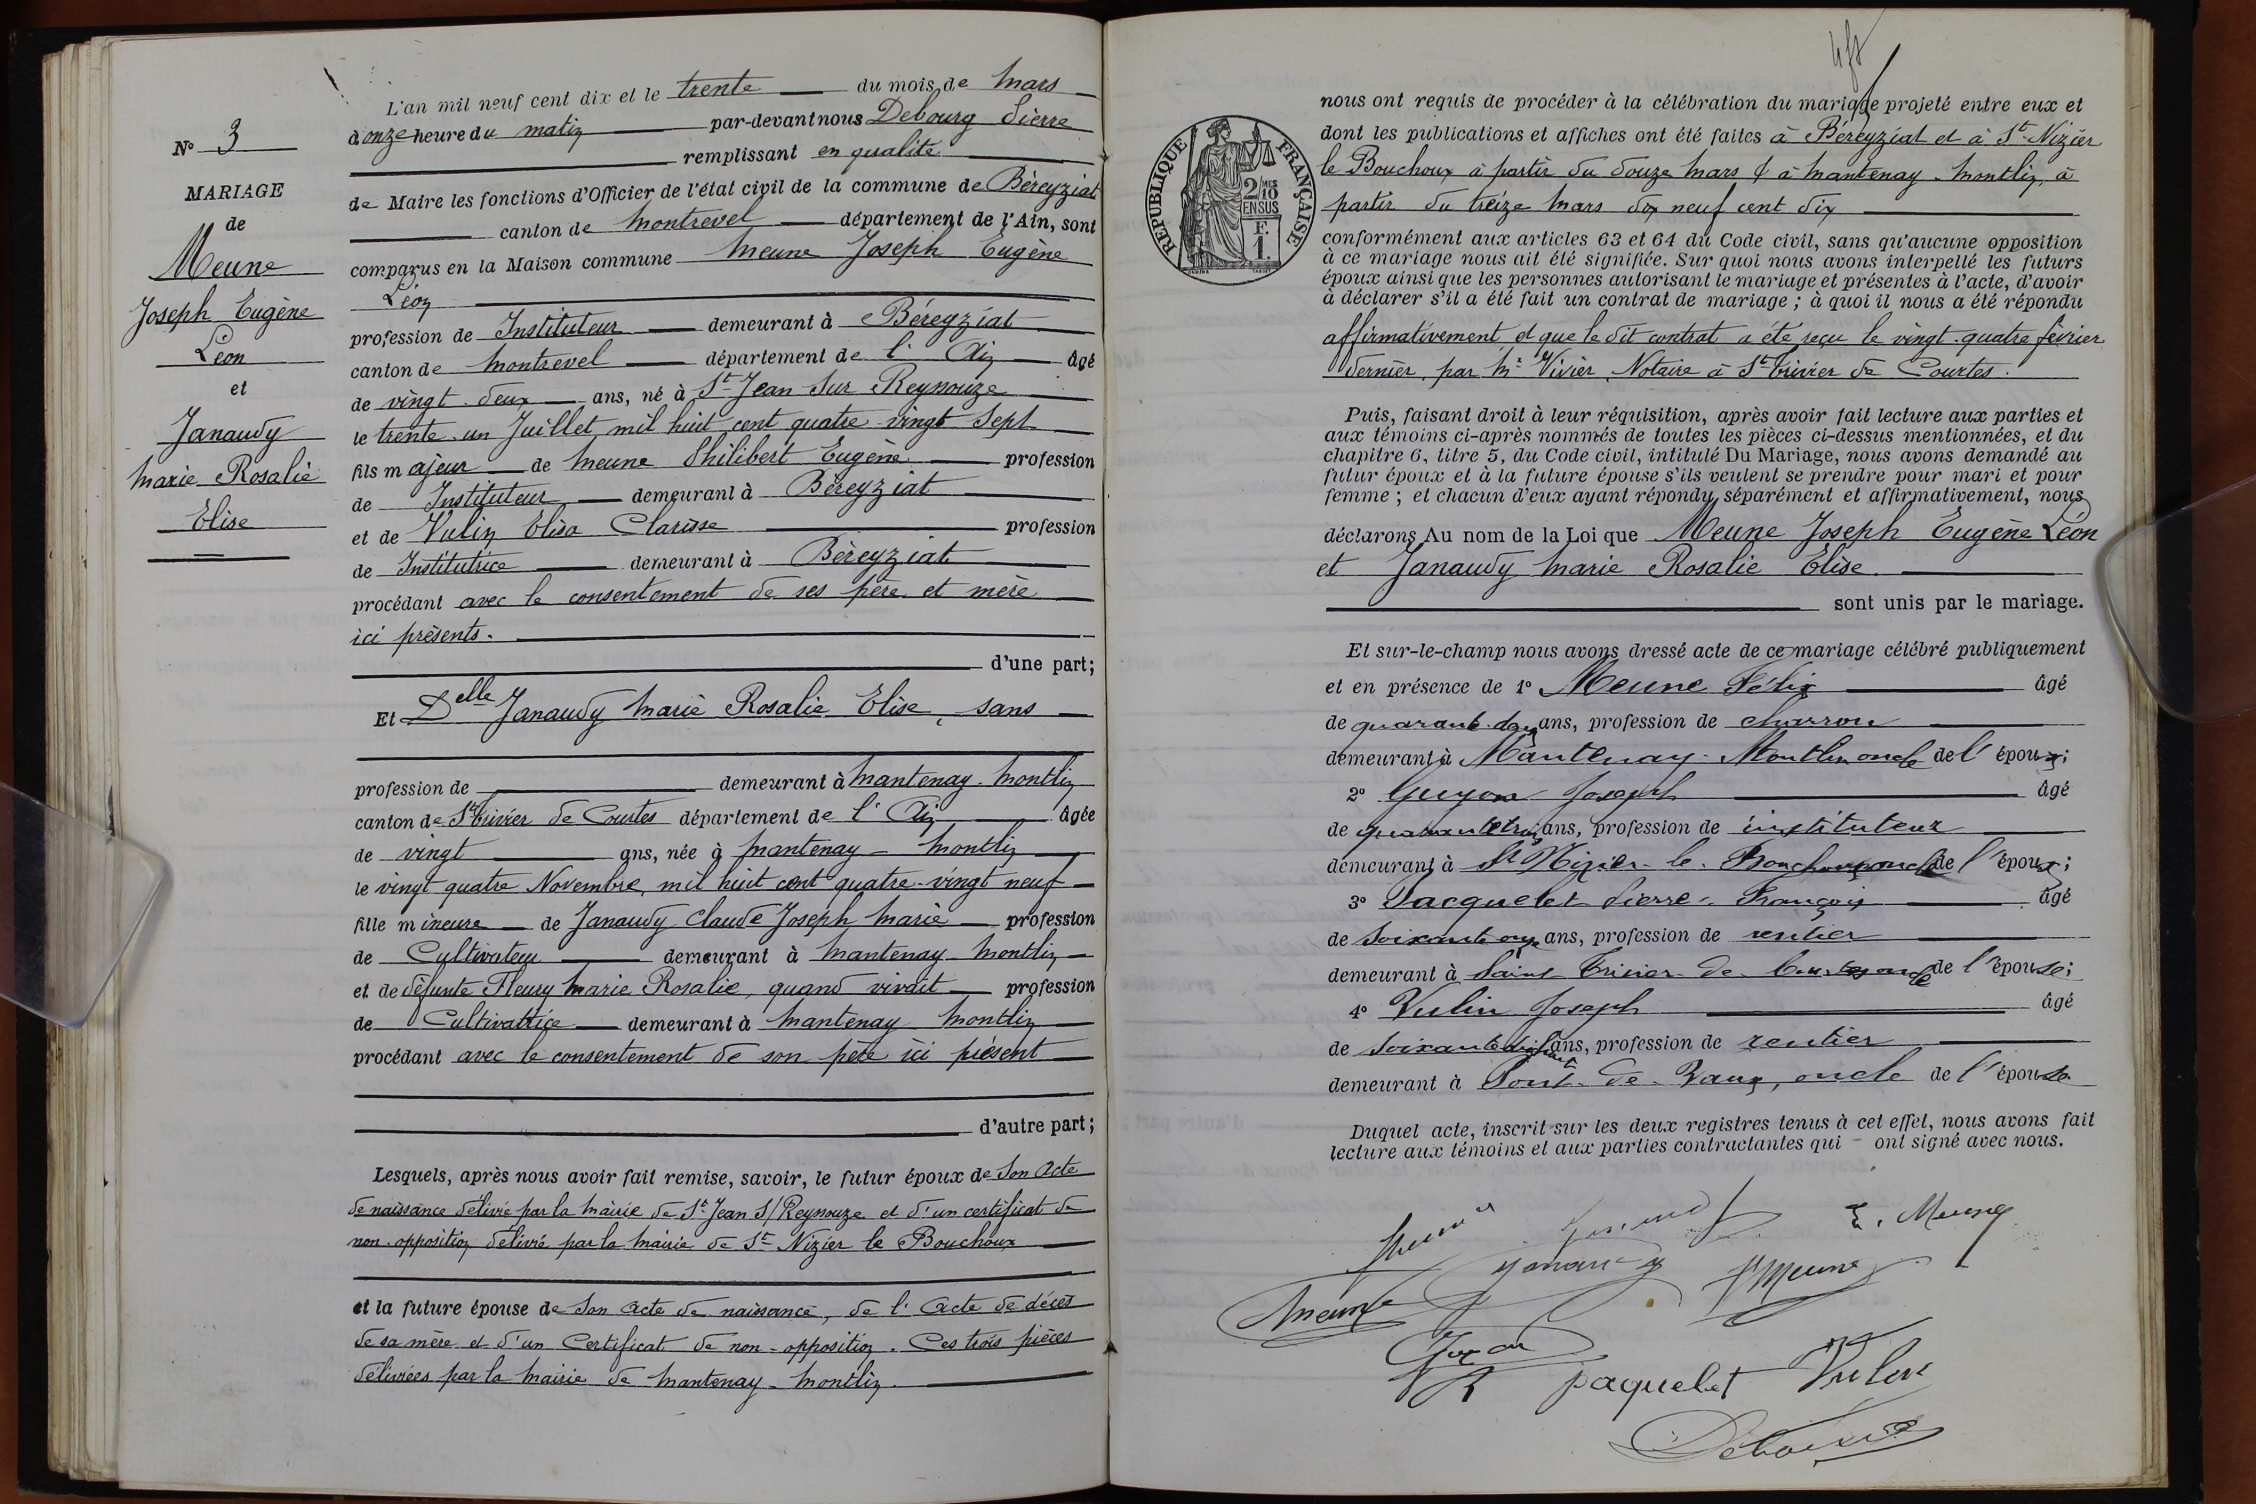 N° 3
MARIAGE
de
Meune
Joseph Eugène
Léon
et
Janaudy
Marie Rosalie
Elise
L'an mil neuf cent dix et le trente du mois de Mars
à onze heure du matin par-devant nous Debourg Pierre
remplissant en qualité
de Maire les fonctions d'Officier de l'état civil de la commune de Béreyziat
canton de Montrevel département de l'Ain, sont
comparus en la Maison commune Meune Joseph Eugène
Léon
profession de Instituteur demeurant à Béreyziat
canton de Montrevel département de l'Ain âgé
de vingt-deux ans, né à St Jean sur Reyssouze
le trente-un Juillet mil huit cent quatre-vingt sept
fils majeur de Meune Philibert Eugène profession
de Instituteur demeurant à Béreyziat
et de Vulin Elisa Clarisse profession
de Institutrice demeurant à Béreyziat
procédant avec le consentement de ses père et mère
ici présents.
d'une part;
Et Delle Janaudy Marie Rosalie Elise, sans
profession de demeurant à Mantenay-Montlin
canton de St Trivier de Courtes département de l'Ain âgée
de vingt ans, née à Mantenay-Montlin
le vingt-quatre Novembre mil huit cent quatre-vingt neuf
fille mineure de Janaudy Claude Joseph Marie profession
de Cultivateur demeurant à Mantenay-Montlin
et de défunte Fleury Marie Rosalie, quand vivait profession
de Cultivatrice demeurant à Mantenay Montlin
procédant avec le consentement de son père ici présent
d'autre part;
Lesquels, après nous avoir fait remise, savoir, le futur époux de son acte
de naissance délivré par la Mairie de St Jean s/Reyssouze et d'un certificat de
non-opposition délivré par la Mairie de St Nizier le Bouchoux
et la future épouse de son acte de naissance, de l'acte de décès
de sa mère et d'un Certificat de non-opposition. Ces trois pièces
délivrées par la Mairie de Mantenay-Montlin.
RÉPUBLIQUE FRANÇAISE
2/10 EN SUS
F. 1.
nous ont requis de procéder à la célébration du mariage projeté entre eux et
dont les publications et affiches ont été faites à Béreyziat et à St Nizier
le Bouchoux à partir du douze Mars & à Mantenay-Montlin, à
partir du treize Mars dix neuf cent dix
conformément aux articles 63 et 64 du Code civil, sans qu'aucune opposition
à ce mariage nous ait été signifiée. Sur quoi nous avons interpellé les futurs
époux ainsi que les personnes autorisant le mariage et présentes à l'acte, d'avoir
à déclarer s'il a été fait un contrat de mariage; à quoi il nous a été répondu
affirmativement et que le dit contrat a été reçu le vingt-quatre février
dernier, par Me Vivier, Notaire à St Trivier de Courtes.
Puis, faisant droit à leur réquisition, après avoir fait lecture aux parties et
aux témoins ci-après nommés de toutes les pièces ci-dessus mentionnées, et du
chapitre 6, titre 5, du Code civil, intitulé Du Mariage, nous avons demandé au
futur époux et à la future épouse s'ils veulent se prendre pour mari et pour
femme; et chacun d'eux ayant répondu séparément et affirmativement, nous
déclarons Au nom de la Loi que Meune Joseph Eugène Léon
et Janaudy Marie Rosalie Elise
sont unis par le mariage.
Et sur-le-champ nous avons dressé acte de ce mariage célébré publiquement
et en présence de 1° Meune Félix âgé
de quarante-deux ans, profession de charron
demeurant à Mantenay-Montlin oncle de l'époux;
2° Guyon Joseph âgé
de quarante trois ans, profession de instituteur
demeurant à St Nizier-le-Bouchoux oncle de l'époux;
3° Pacquelet Pierre-François âgé
de soixante onze ans, profession de rentier
demeurant à Saint Trivier-de-Courtes oncle de l'épouse;
4° Vulin Joseph âgé
de soixante ans, profession de rentier
demeurant à Pont-de-Vaux, oncle de l'épouse
Duquel acte, inscrit sur les deux registres tenus à cet effet, nous avons fait
lecture aux témoins et aux parties contractantes qui - ont signé avec nous.
E. Meune
Janaudy
Meune
Meune
Guyon
paquelet
Vulin